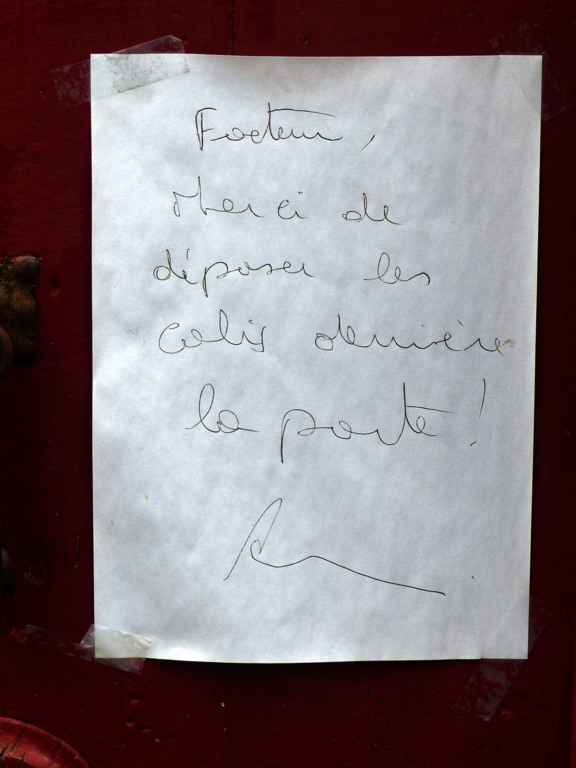 Facteur,
Merci de
déposer les
colis derrière
la porte !